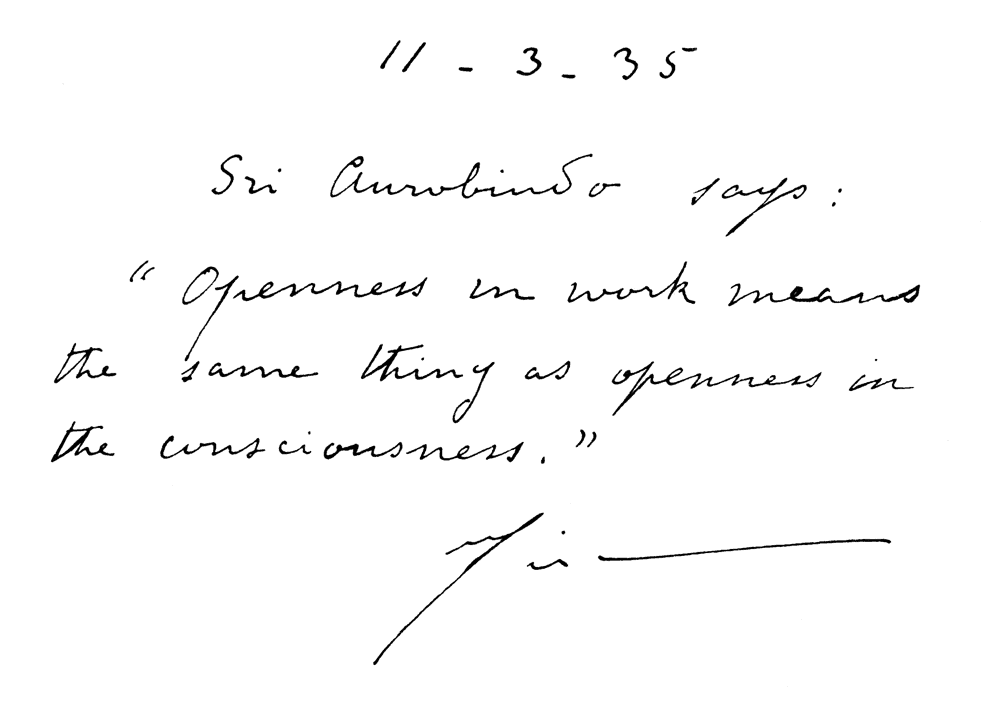 11 - 3 - 35
Sri Aurobindo says:
“Openness in work means
the same thing as openness in
the consciousness.”